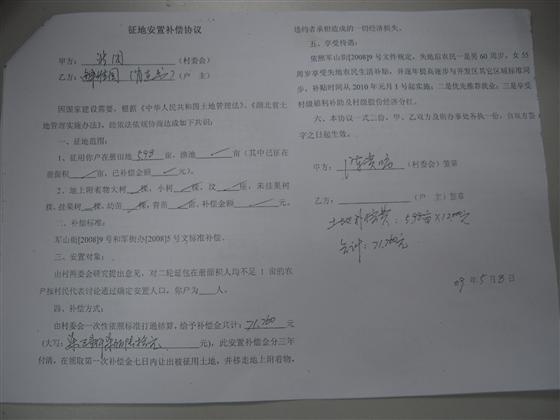 征地安置补偿协议
甲方：
（村委会）
乙方：
（户 主）
因国家建设需要，根据《中华人民共和国土地管理法》、《湖北省土
地管理实施办法》，经依法依规协商达成如下共识：
一、征地范围：
1、征用你户在册田地 5.98 亩，渔池 亩（其中已征在
册面积 亩，已补偿金额 元）。
2、地上附着物大树 棵，小树 棵，坟 座，未挂果树
棵，挂果树 棵，幼苗 亩，青苗 亩，补偿金额 元。
二、补偿标准：
军山街[2008]9号和军街办[2008]5号文标准补偿。
三、安置对象：
由村两委会研究提出意见，对二轮延包在册面积人均不足 1 亩的农
户按村民代表讨论通过确定安置人口，你户为 人。
四、补偿方式：
由村委会一次性依照标准打通结算，给予补偿金共计：71,760 元
（大写： 元），此安置补偿金分三年
付清，在领取第一次补偿金七日内让出被征用土地，并移走地上附着物，
违约者承担造成的一切经济损失。
五、享受待遇：
依照军山街[2008]9号文件规定，失地后农民一是男 60 周岁，女 55
周岁享受失地农民生活补贴，并逐年提高逐步与开发区其它区域标准同
步，补贴时间从 2010 年元月 1 号起实施；二是优先推荐就业；三是享受
村级福利补助及村级股份经济分红。
六、本协议一式二份，甲、乙双方及街办事处各执一份，自双方签
字之日起生效。
甲方：
（村委会）签章
乙方：
（户 主）签章
土地补偿费：5.98亩×12000元
合计：71,760元
09年5月8日